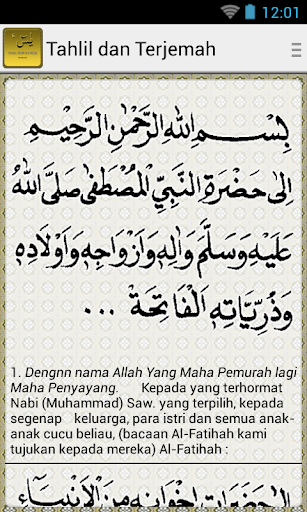 12:01
Tahlil dan Terjemah
بِسْمِ اللهِ الرَّحْمٰنِ الرَّحِيْمِ
اِلٰى حَضْرَةِ النَّبِيِّ الْمُصْطَفٰى صَلَّى اللهُ
عَلَيْهِ وَسَلَّمَ وَاٰلِهِ وَاَزْوَاجِهِ وَاَوْلَادِهِ
وَذُرِّيَّاتِهِ اَلْفَاتِحَةْ ...
1. Dengnn nama Allah Yang Maha Pemurah lagi
Maha Penyayang. Kepada yang terhormat
Nabi (Muhammad) Saw. yang terpilih, kepada
segenap keluarga, para istri dan semua anak-
anak cucu beliau, (bacaan Al-Fatihah kami
tujukan kepada mereka) Al-Fatihah :
الْحَضَرَاتِ اِخْوَانِهِ مِنَ الْاَنْبِيَاءِ